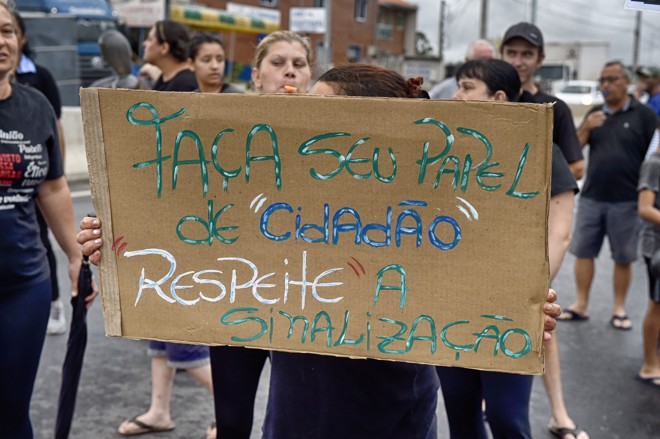 FAÇA SEU PAPEL
de "CIDADÃO"
"RESPEITE" A
SINALIZAÇÃO